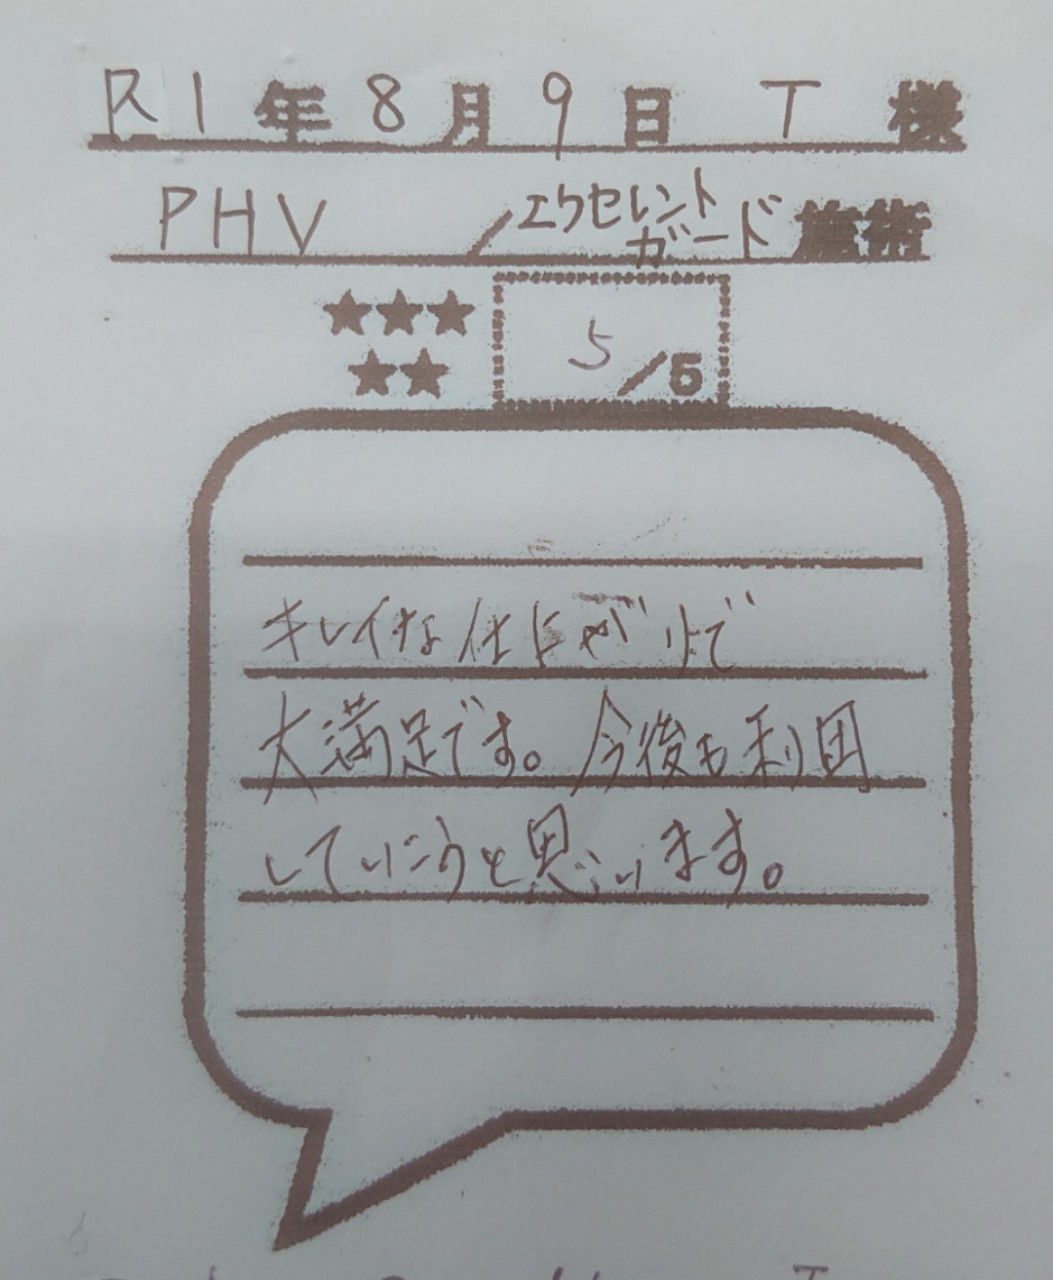 R1年8月9日 T 様
PHV / エクセレント
ガード 施術
5/5
キレイな仕上がりで
大満足です。今後も利用
していこうと思います。